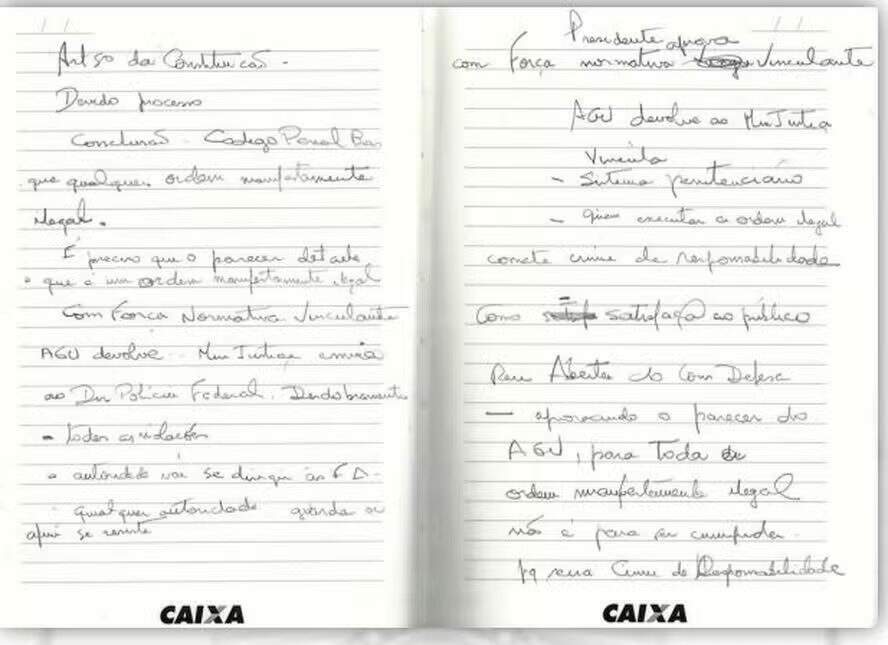 Art 5º da Constituicão -
Devido processo
Conclusão - Codego Penal
que qualquer ordem manifestamente
ilegal.
É preciso que o parecer detalhe
que é um ordem manifestamente ilegal
Com Força Normativa Vinculante
AGU devolve - Min Justiça envia
ao Policia Federal.
- todas as violações
- autoridade vai se dirigir
qualquer autoridade
se
CAIXA
Presidente aprova
com Força normativa Vinculante
AGU devolve ao Min Justiça
Vincula
- Sistema penitenciário
- quem executar a ordem ilegal
comete crime de responsabilidade
Como satisfaçã ao público
Reu Aberta do Com Defesa
- aprovando o parecer do
AGU, para Toda
ordem manifestamente ilegal
não é para ser cumprida.
pq seria Crime de Responsabilidade
CAIXA